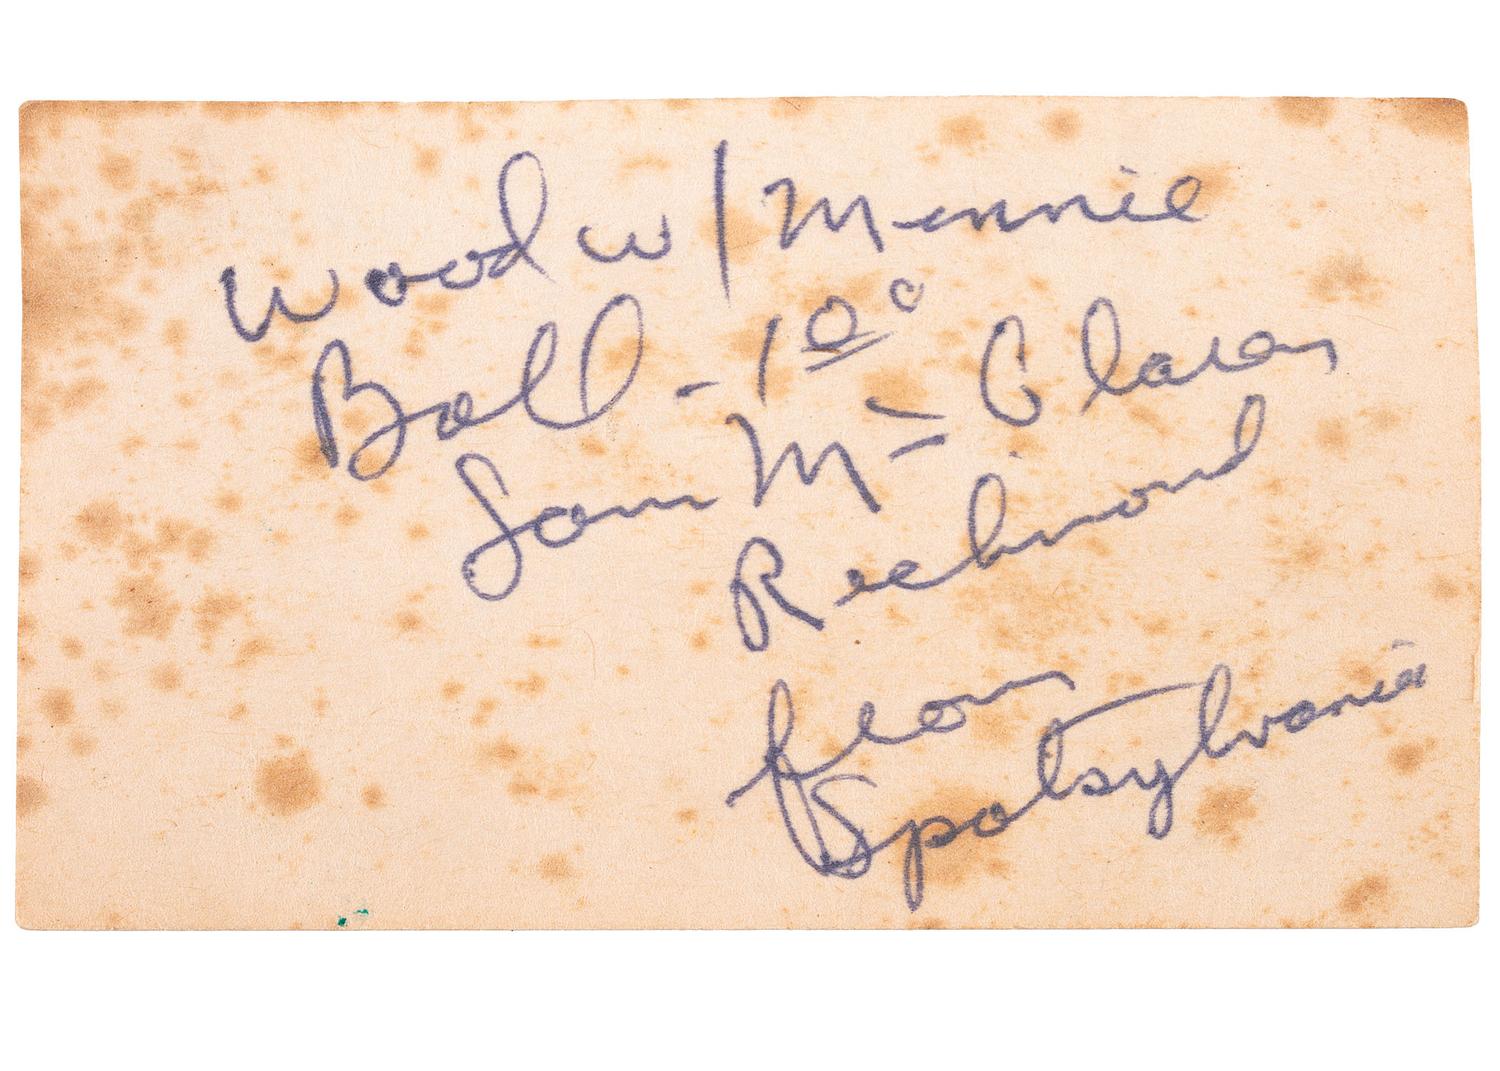 Wood w/ Minnie
Ball - 10⁰
Sam Mc Claren
Richmond
from
Spotsylvania